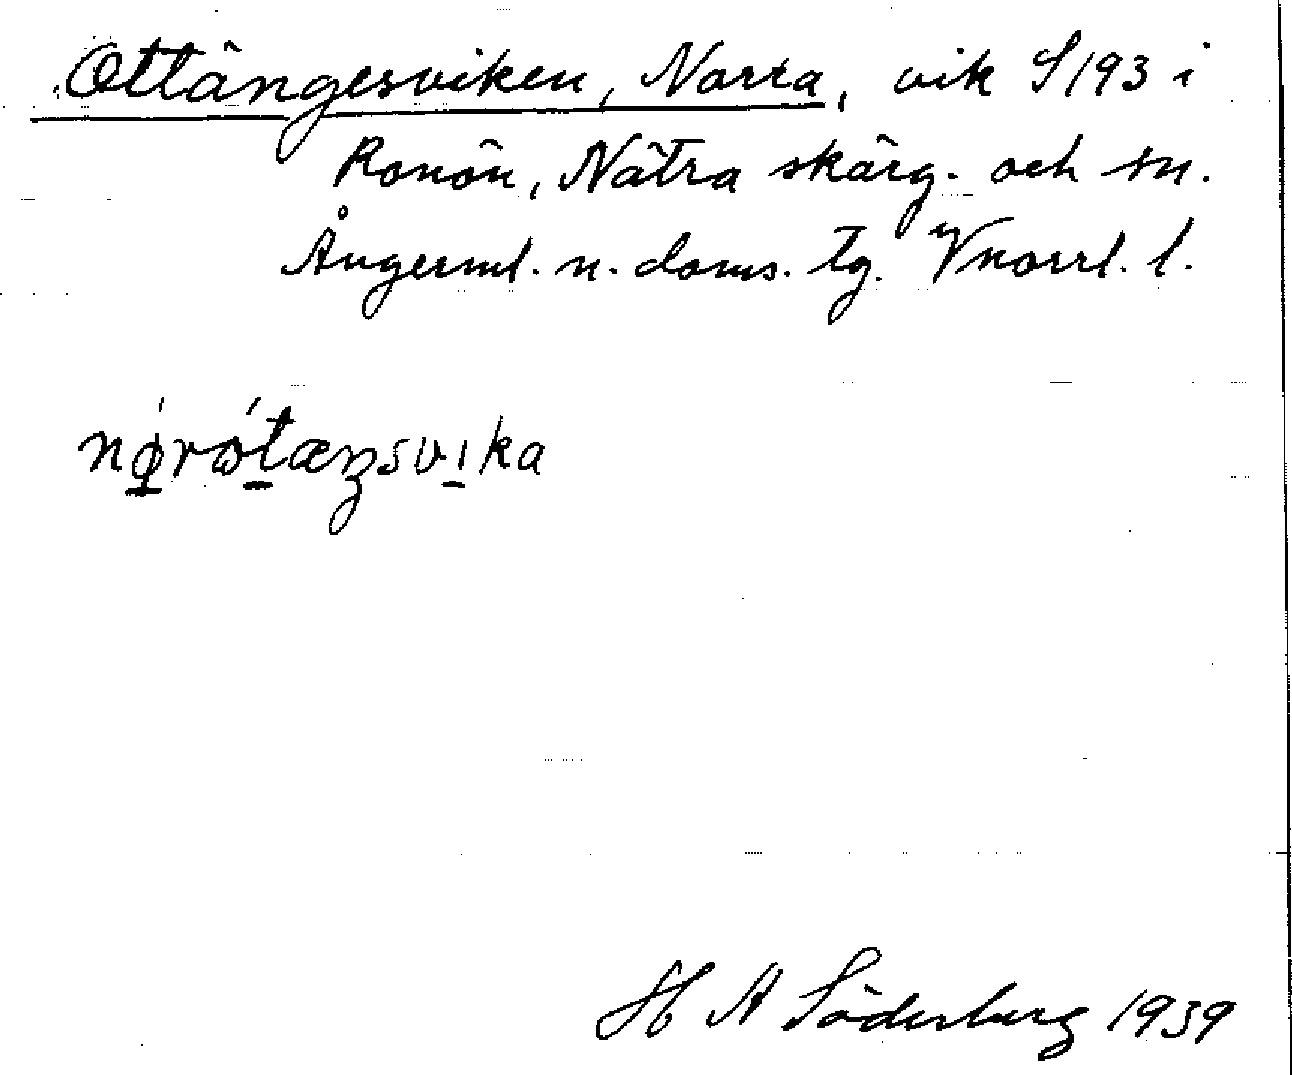 Ottängesviken, Norra, vik S193 i
Ronön, Nätra skärg. och sn.
Ångerml. n. doms. tg. Vnorrl. l.
nørωtæŋsvika
H A Söderberg 1939